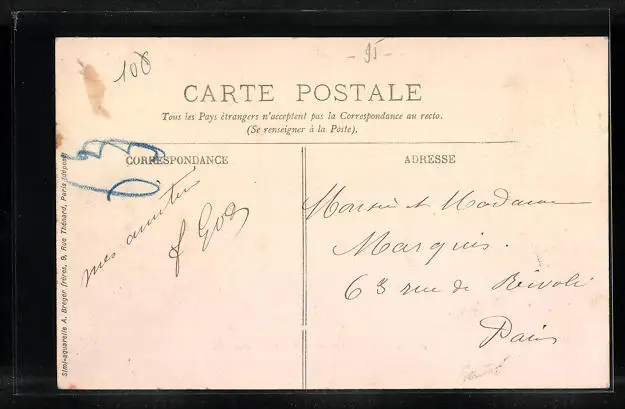 108
- 95 -
CARTE POSTALE
Tous les Pays étrangers n'acceptent pas la Correspondance au recto.
(Se renseigner à la Poste).
CORRESPONDANCE
ADRESSE
63
mes amitiés
Monsieur et Madame
Marquis.
63 rue de Rivoli
Paris
Simi-aquarelle A. Breger frères, 9, Rue Thénard, Paris (déposé)